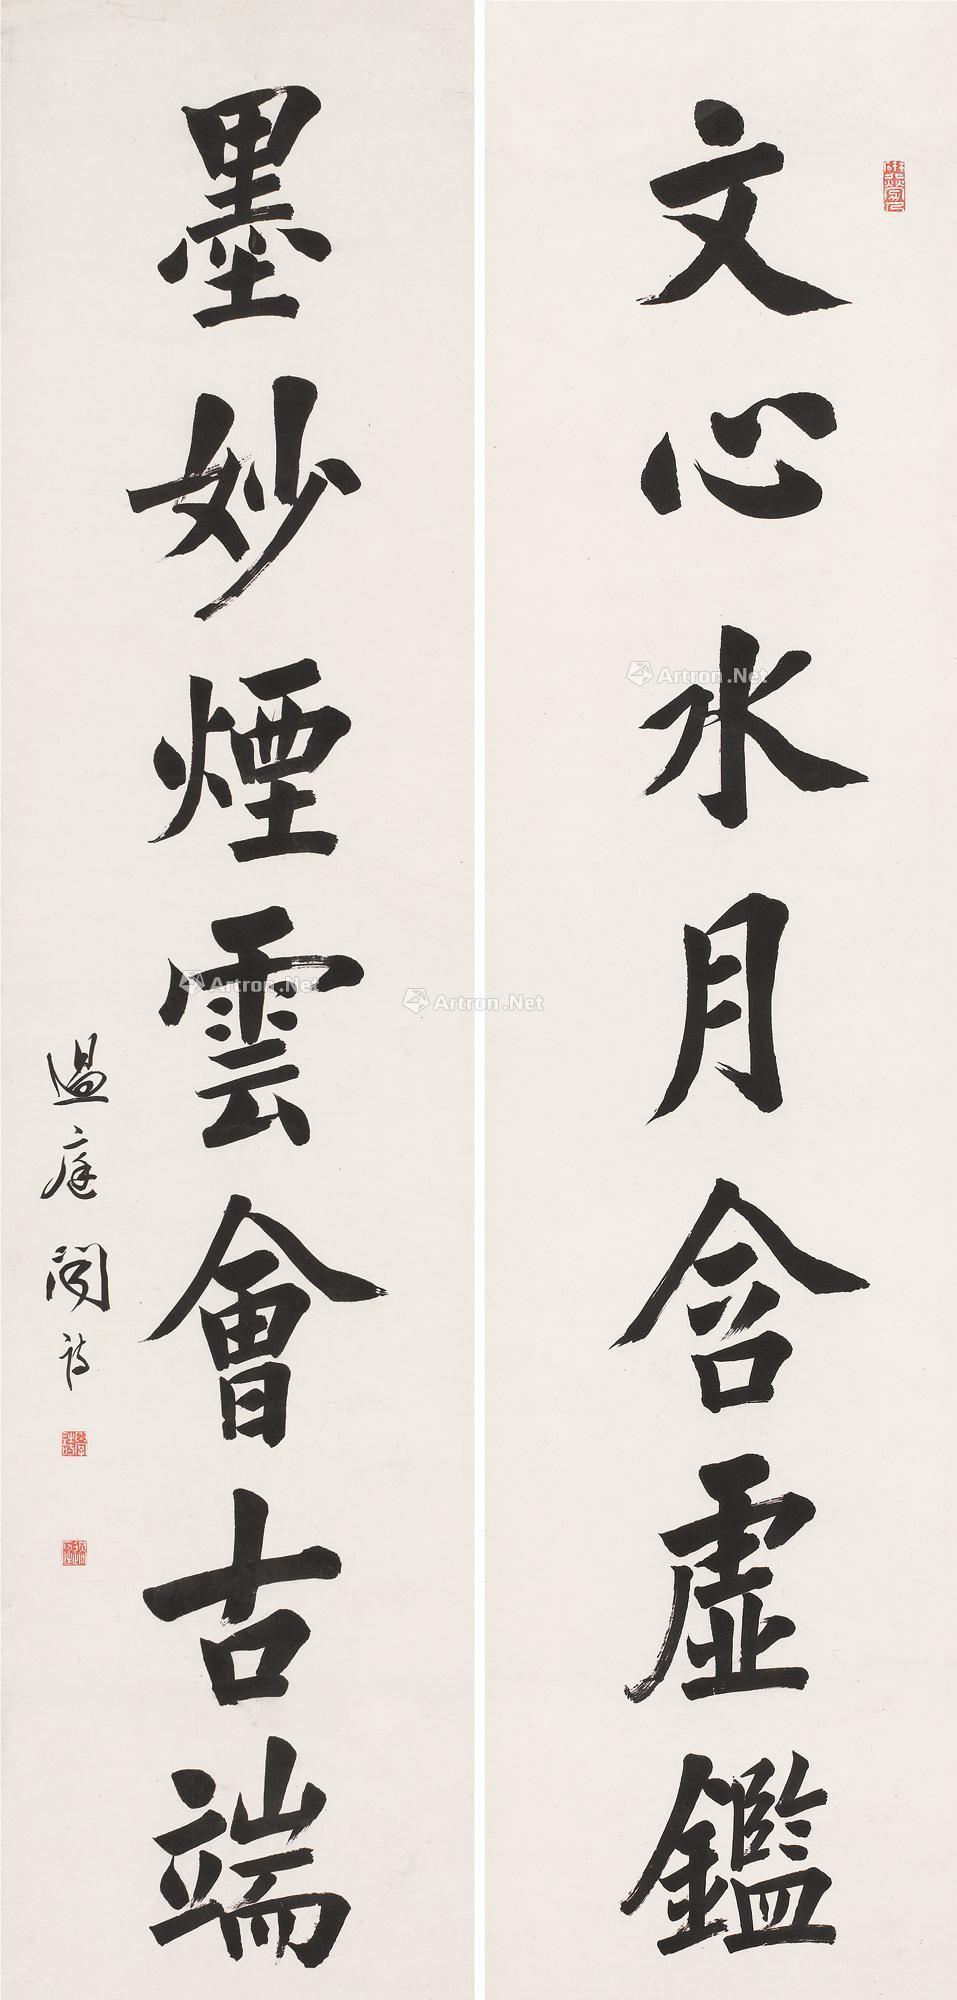 文心水月含虛鑑
墨妙煙雲會古端
溫庭開詩
Artron.Net
Artron.Net
Artron.Net